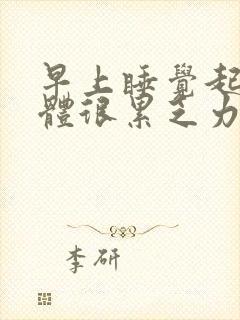 早上睡覺起
體很累乏力
李研